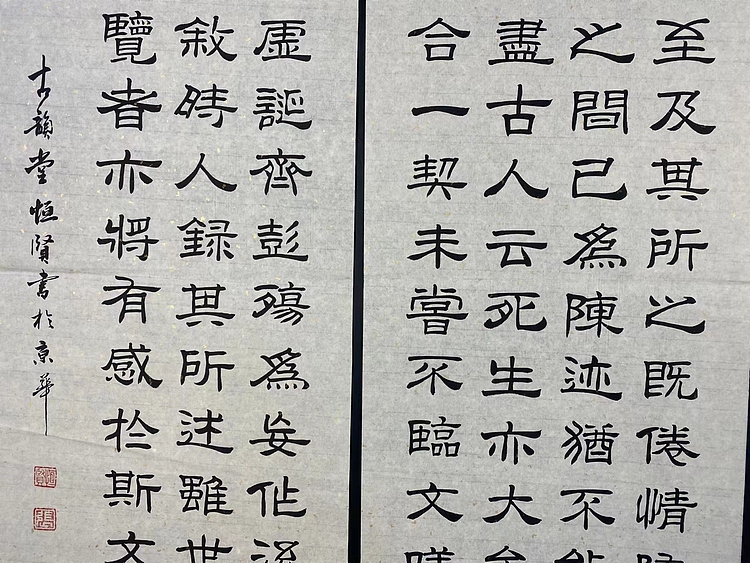 至及其所之既倦情
之間已爲陳迹猶不
盡古人云死生亦大
合一契未嘗不臨文
虛誕齊彭殤爲妄作
敘時人錄其所述雖世
覽者亦將有感於斯文
古韻堂恒賢書於京華